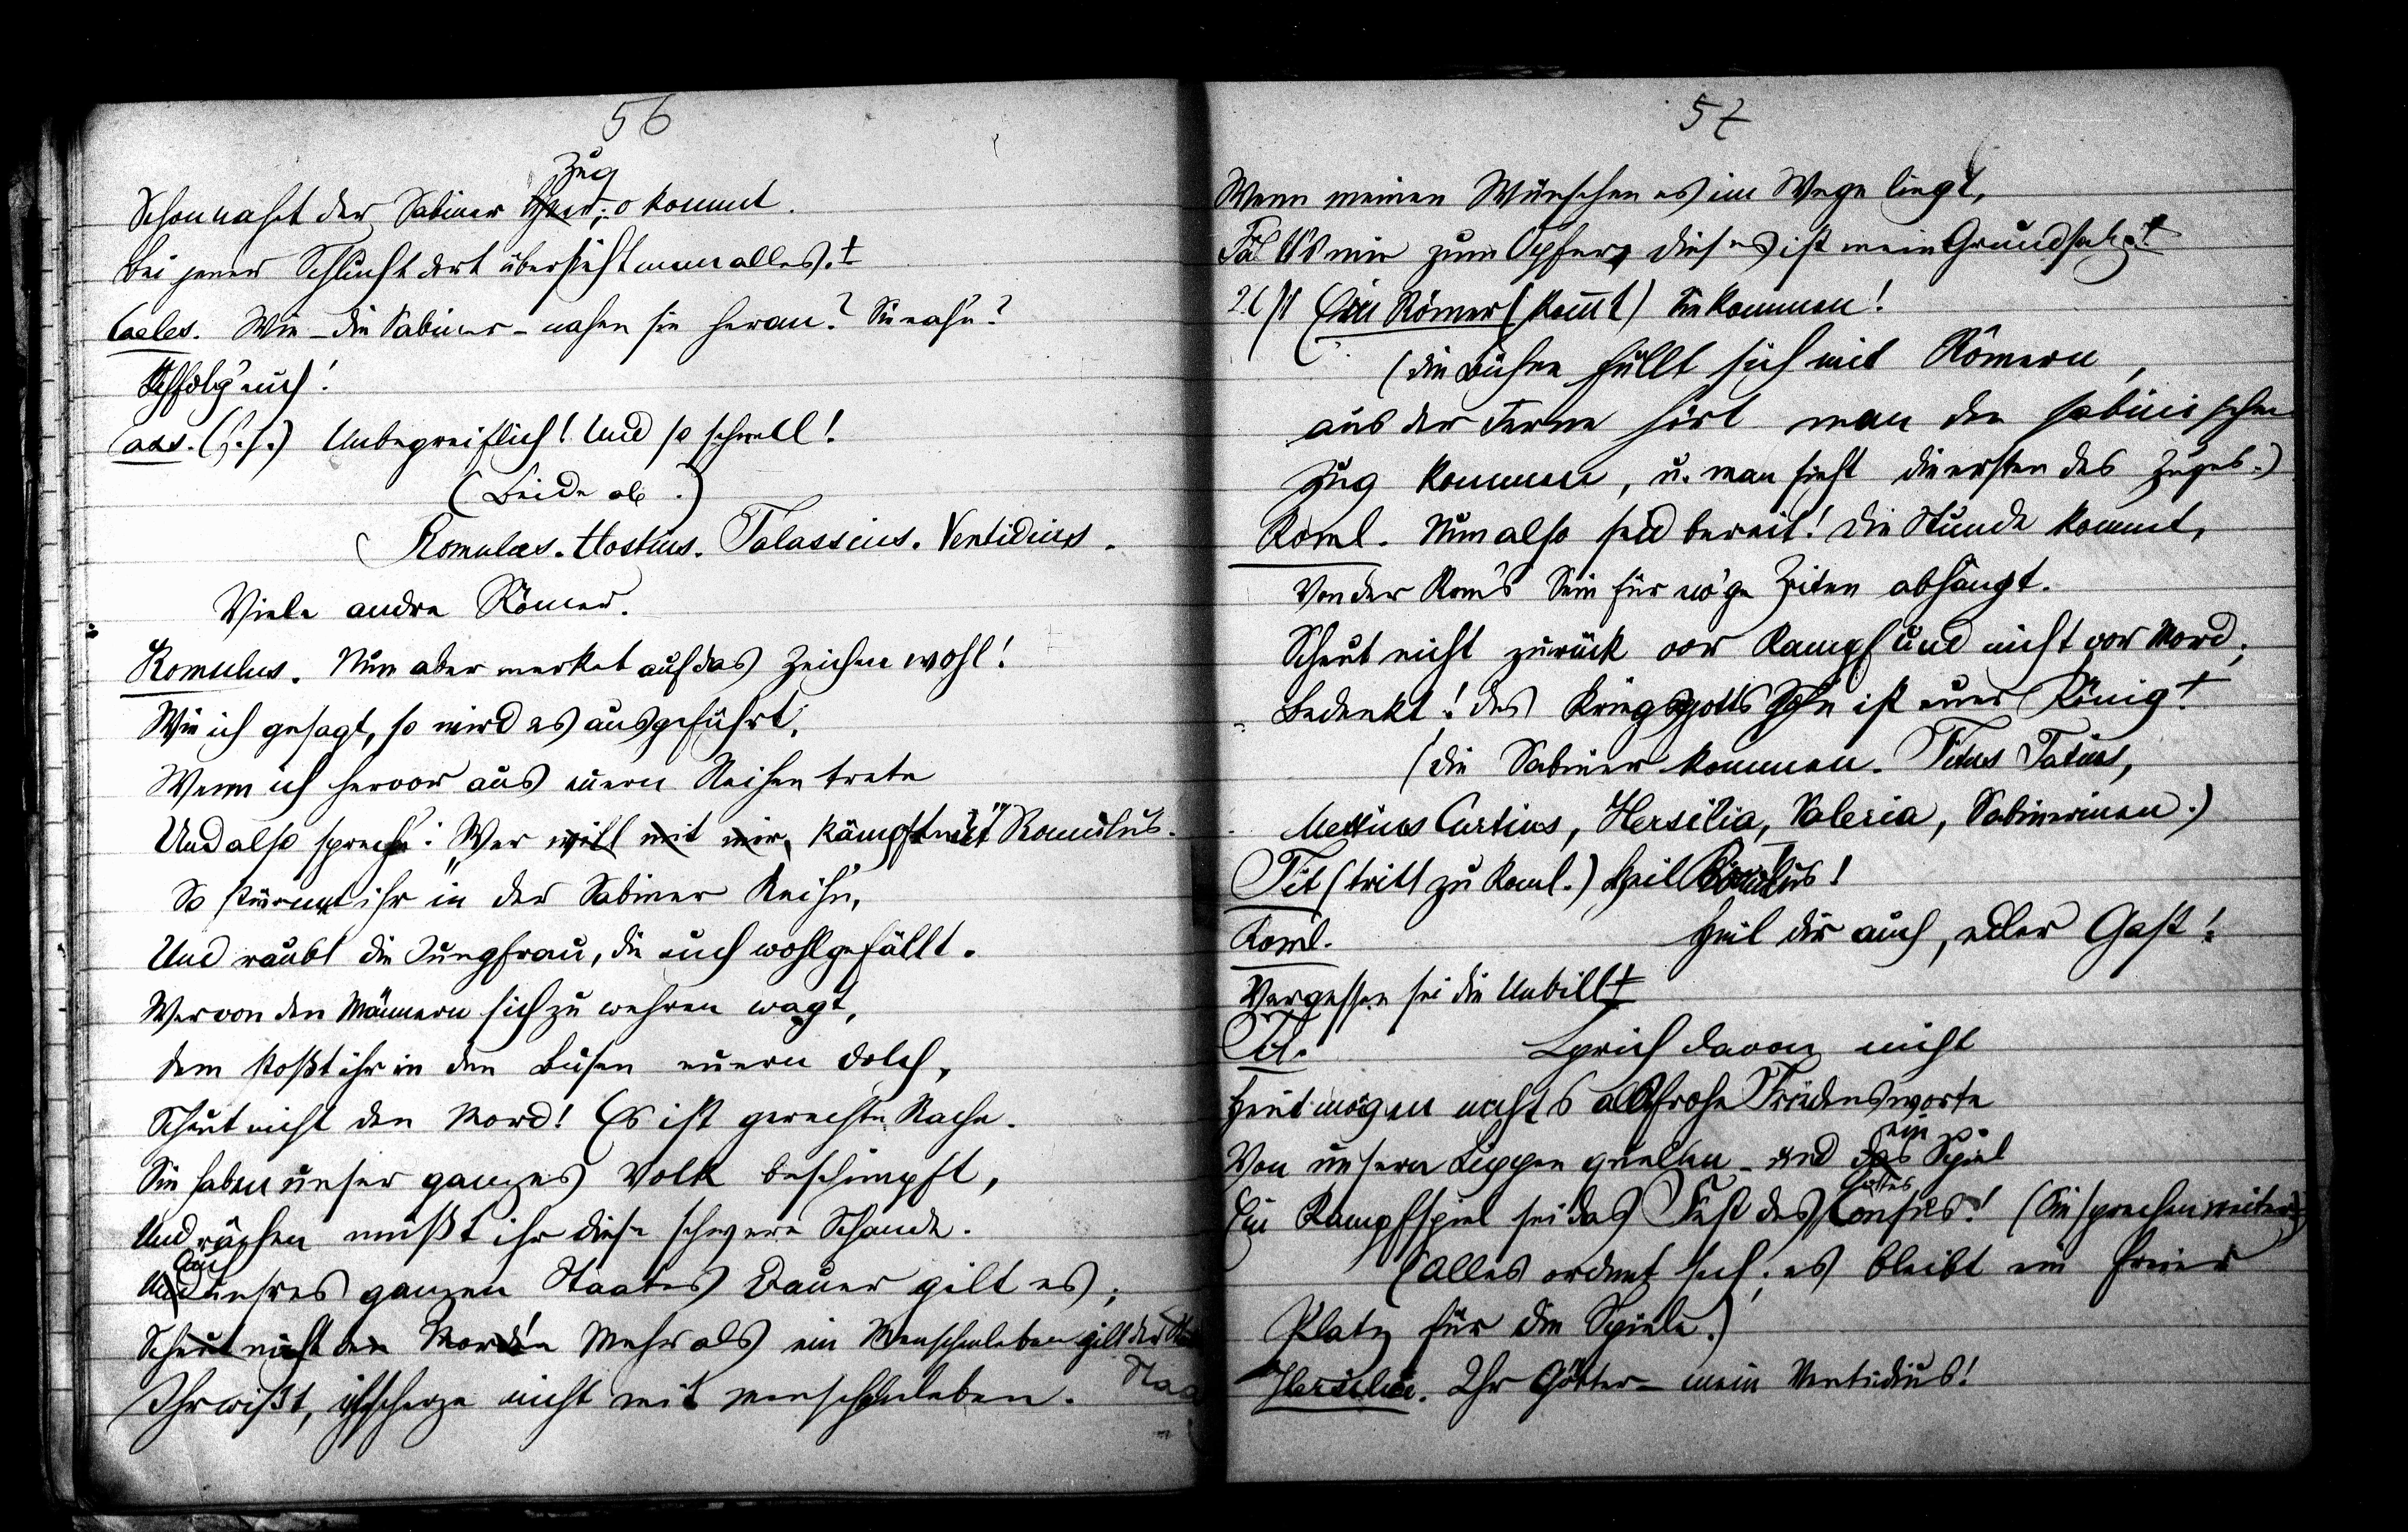 56
Zug
Schon naht der Sabiner Heer; o kommt.
Bei jener Schlucht dort übersieht man alles.
Caeles. Wie - die Sabiner - nahen sie heran? Sie nahn?
Ich folg' euch!
Cass. (f. s.) Unbegreiflich! Und so schnell!
(Beide ab.)
Romulus. Hostius. Talassius. Ventidius.
Viele andre Römer.
Romulus. Nun aber merket auf das Zeichen wohl!
Wie ich gesagt, so wird es ausgeführt.
Wenn ich hervor aus euern Reihen trete
Und also spreche: „Wer will mit mir, kämpft mit" Romulus.
So stürmt ihr in der Sabiner Reihn,
Und raubt die Jungfrau, die euch wohlgefällt.
Wer von den Männern sich zu wehren wagt,
Dem stoßt ihr in den Busen euern Dolch,
Scheut nicht den Mord! Es ist gerechte Rache.
Sie haben unser ganzes Volk beschimpft,
Und rächen müßt ihr diese schwere Schande.
Auch
Und unsres ganzen Staates Dauer gilt es;
Scheut nicht den Mord! Mehr als ein Menschenleben gilt der
Staa
Ihr wißt, ich scherze nicht mit Menschenleben.
57
Wenn meinen Wünschen es im Wege liegt,
Fällt's mir zum Opfer, dieses ist mein Grundsatz.
Ein Römer (kommt) Sie kommen!
(die Bühne füllt sich mit Römern,
aus der Ferne hört man den sabinischen
Zug kommen, u. man sieht die ersten des Zuges.)
Roml. Nun also seid bereit! Die Stunde kommt,
Von der Rom's Sein für ew'ge Zeiten abhängt.
Scheut nicht zurück vor Kampf und nicht vor Mord;
Bedenkt! des Kriegsgotts Sohn ist euer König!
(die Sabiner kommen. Titus Tatius,
Mettius Curtius, Hersilia, Valeria, Sabinerinnen.)
Tit (tritt zu Roml.) Heil Romulus!
Roml. Heil dir auch, edler Gast!
Vergessen sei die Unbill
Tit. Sprich davon nicht
Heut mögen nichts als frohe Friedensworte
ein
Von unsern Lippen quellen - und das Spiel
Gottes
Ein Kampfspiel sei das Fest des Consus! (Sie sprechen weiter)
(Alles ordnet sich; es bleibt ein freier
Platz für die Spiele.)
Hersilia. Ihr Götter - mein Ventidius!